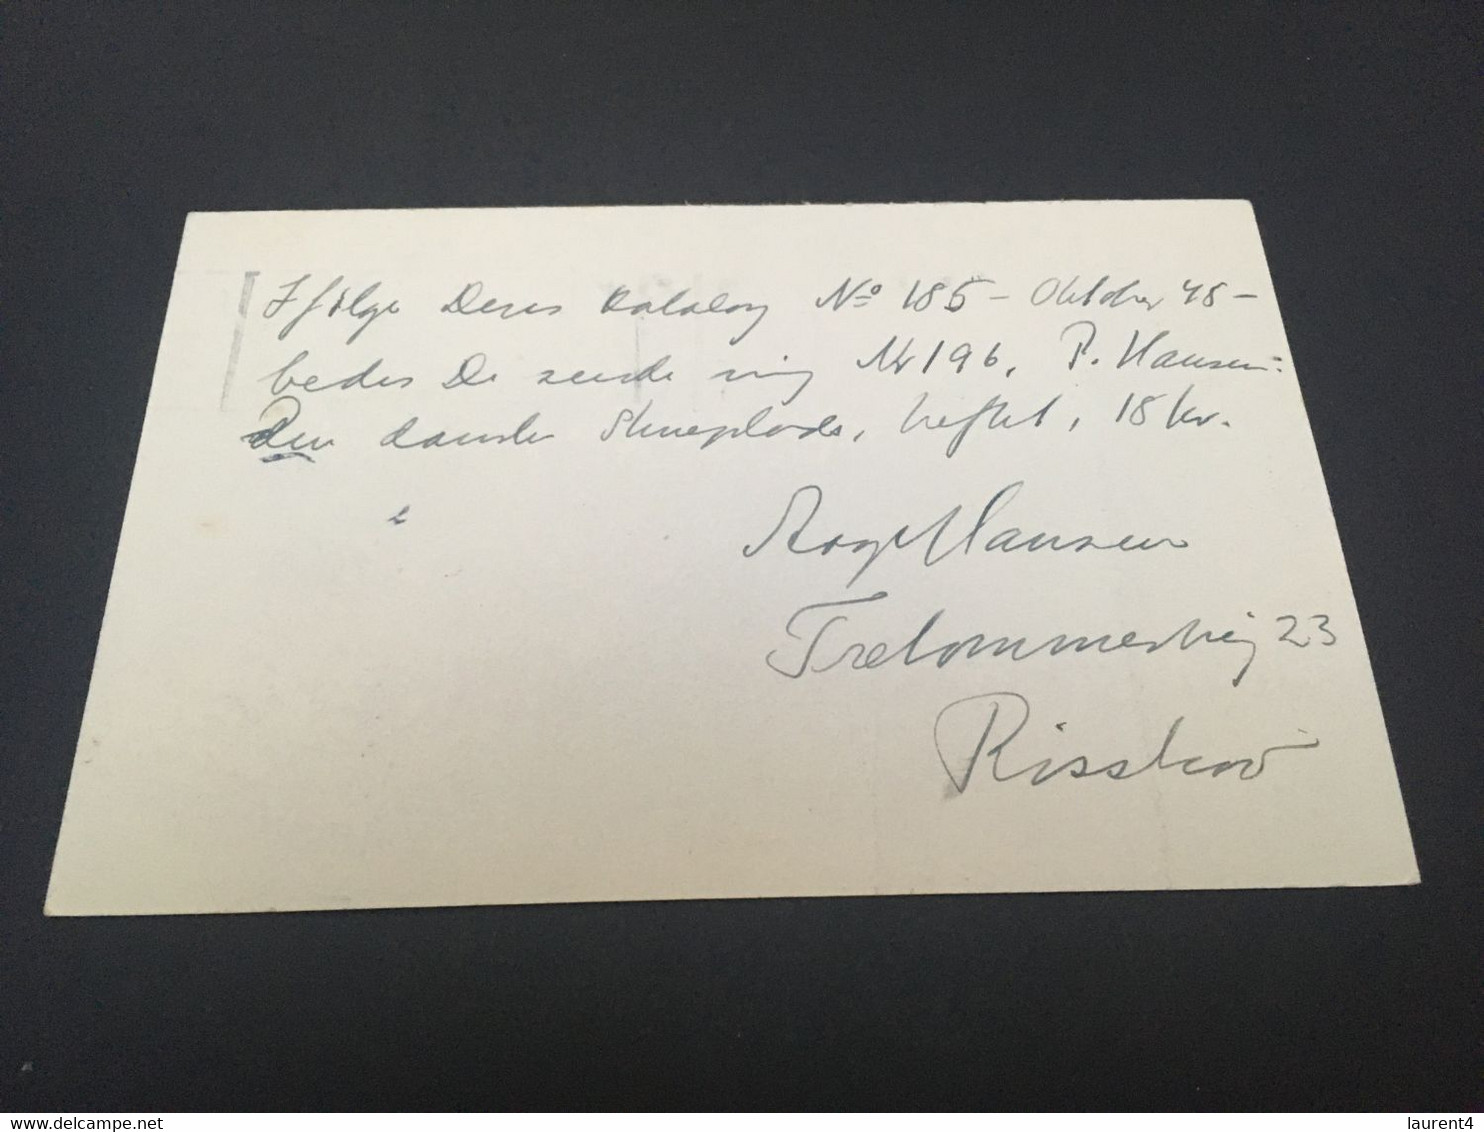 Ifølge Deres Katalog No 185 - Oktober 48 -
bedes De sende mig Nr 196, P. Hansen:
Den danske Skueplads, heftet, 18 kr.
Aage Hansen
Tretommervej 23
Risskov
delcampe.net
laurent4